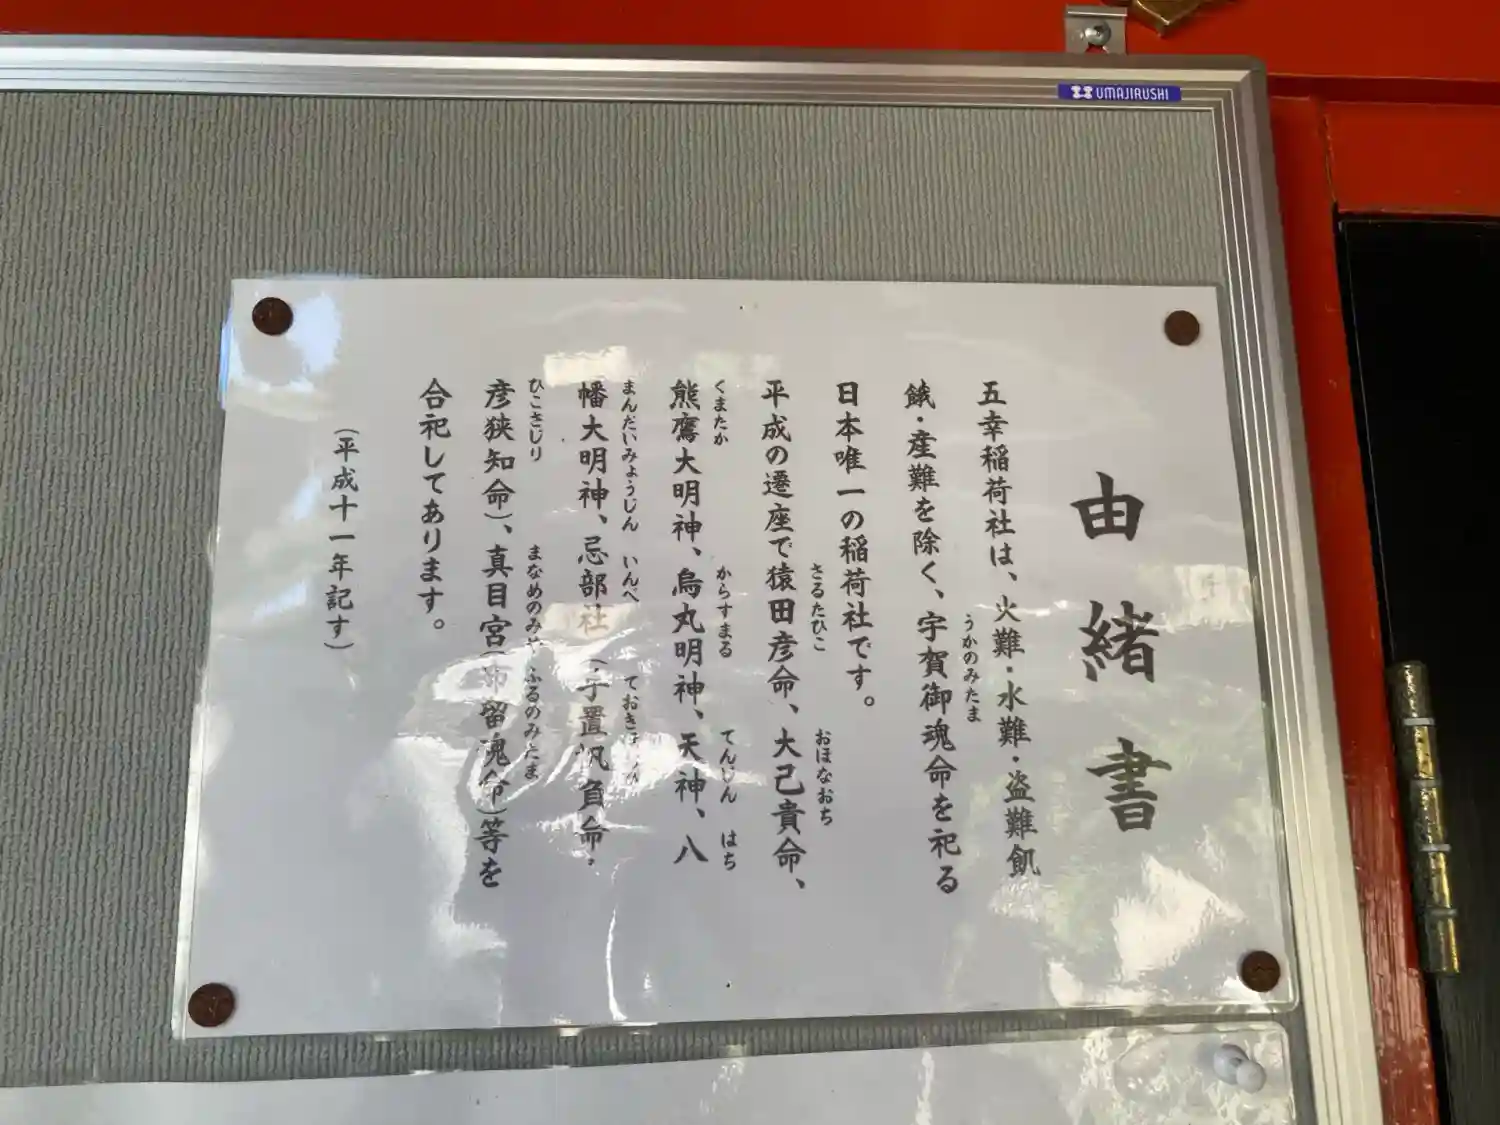 UMAJIRUSHI
由緒書
五幸稲荷社は、火難・水難・盗難飢
餓・産難を除く、宇賀御魂命を祀る
うかのみたま
日本唯一の稲荷社です。
平成の遷座で猿田彦命、大己貴命、
さるたひこ おほなおち
熊鷹大明神、烏丸明神、天神、八
くまたか からすまる てんじん はち
幡大明神、忌部社(手置帆負命・
まんだいみょうじん いんべ ておき
彦狭知命)、真目宮(布留魂命)等を
ひこさじり まなめのみや ふるのみたま
合祀してあります。
(平成十一年記す)